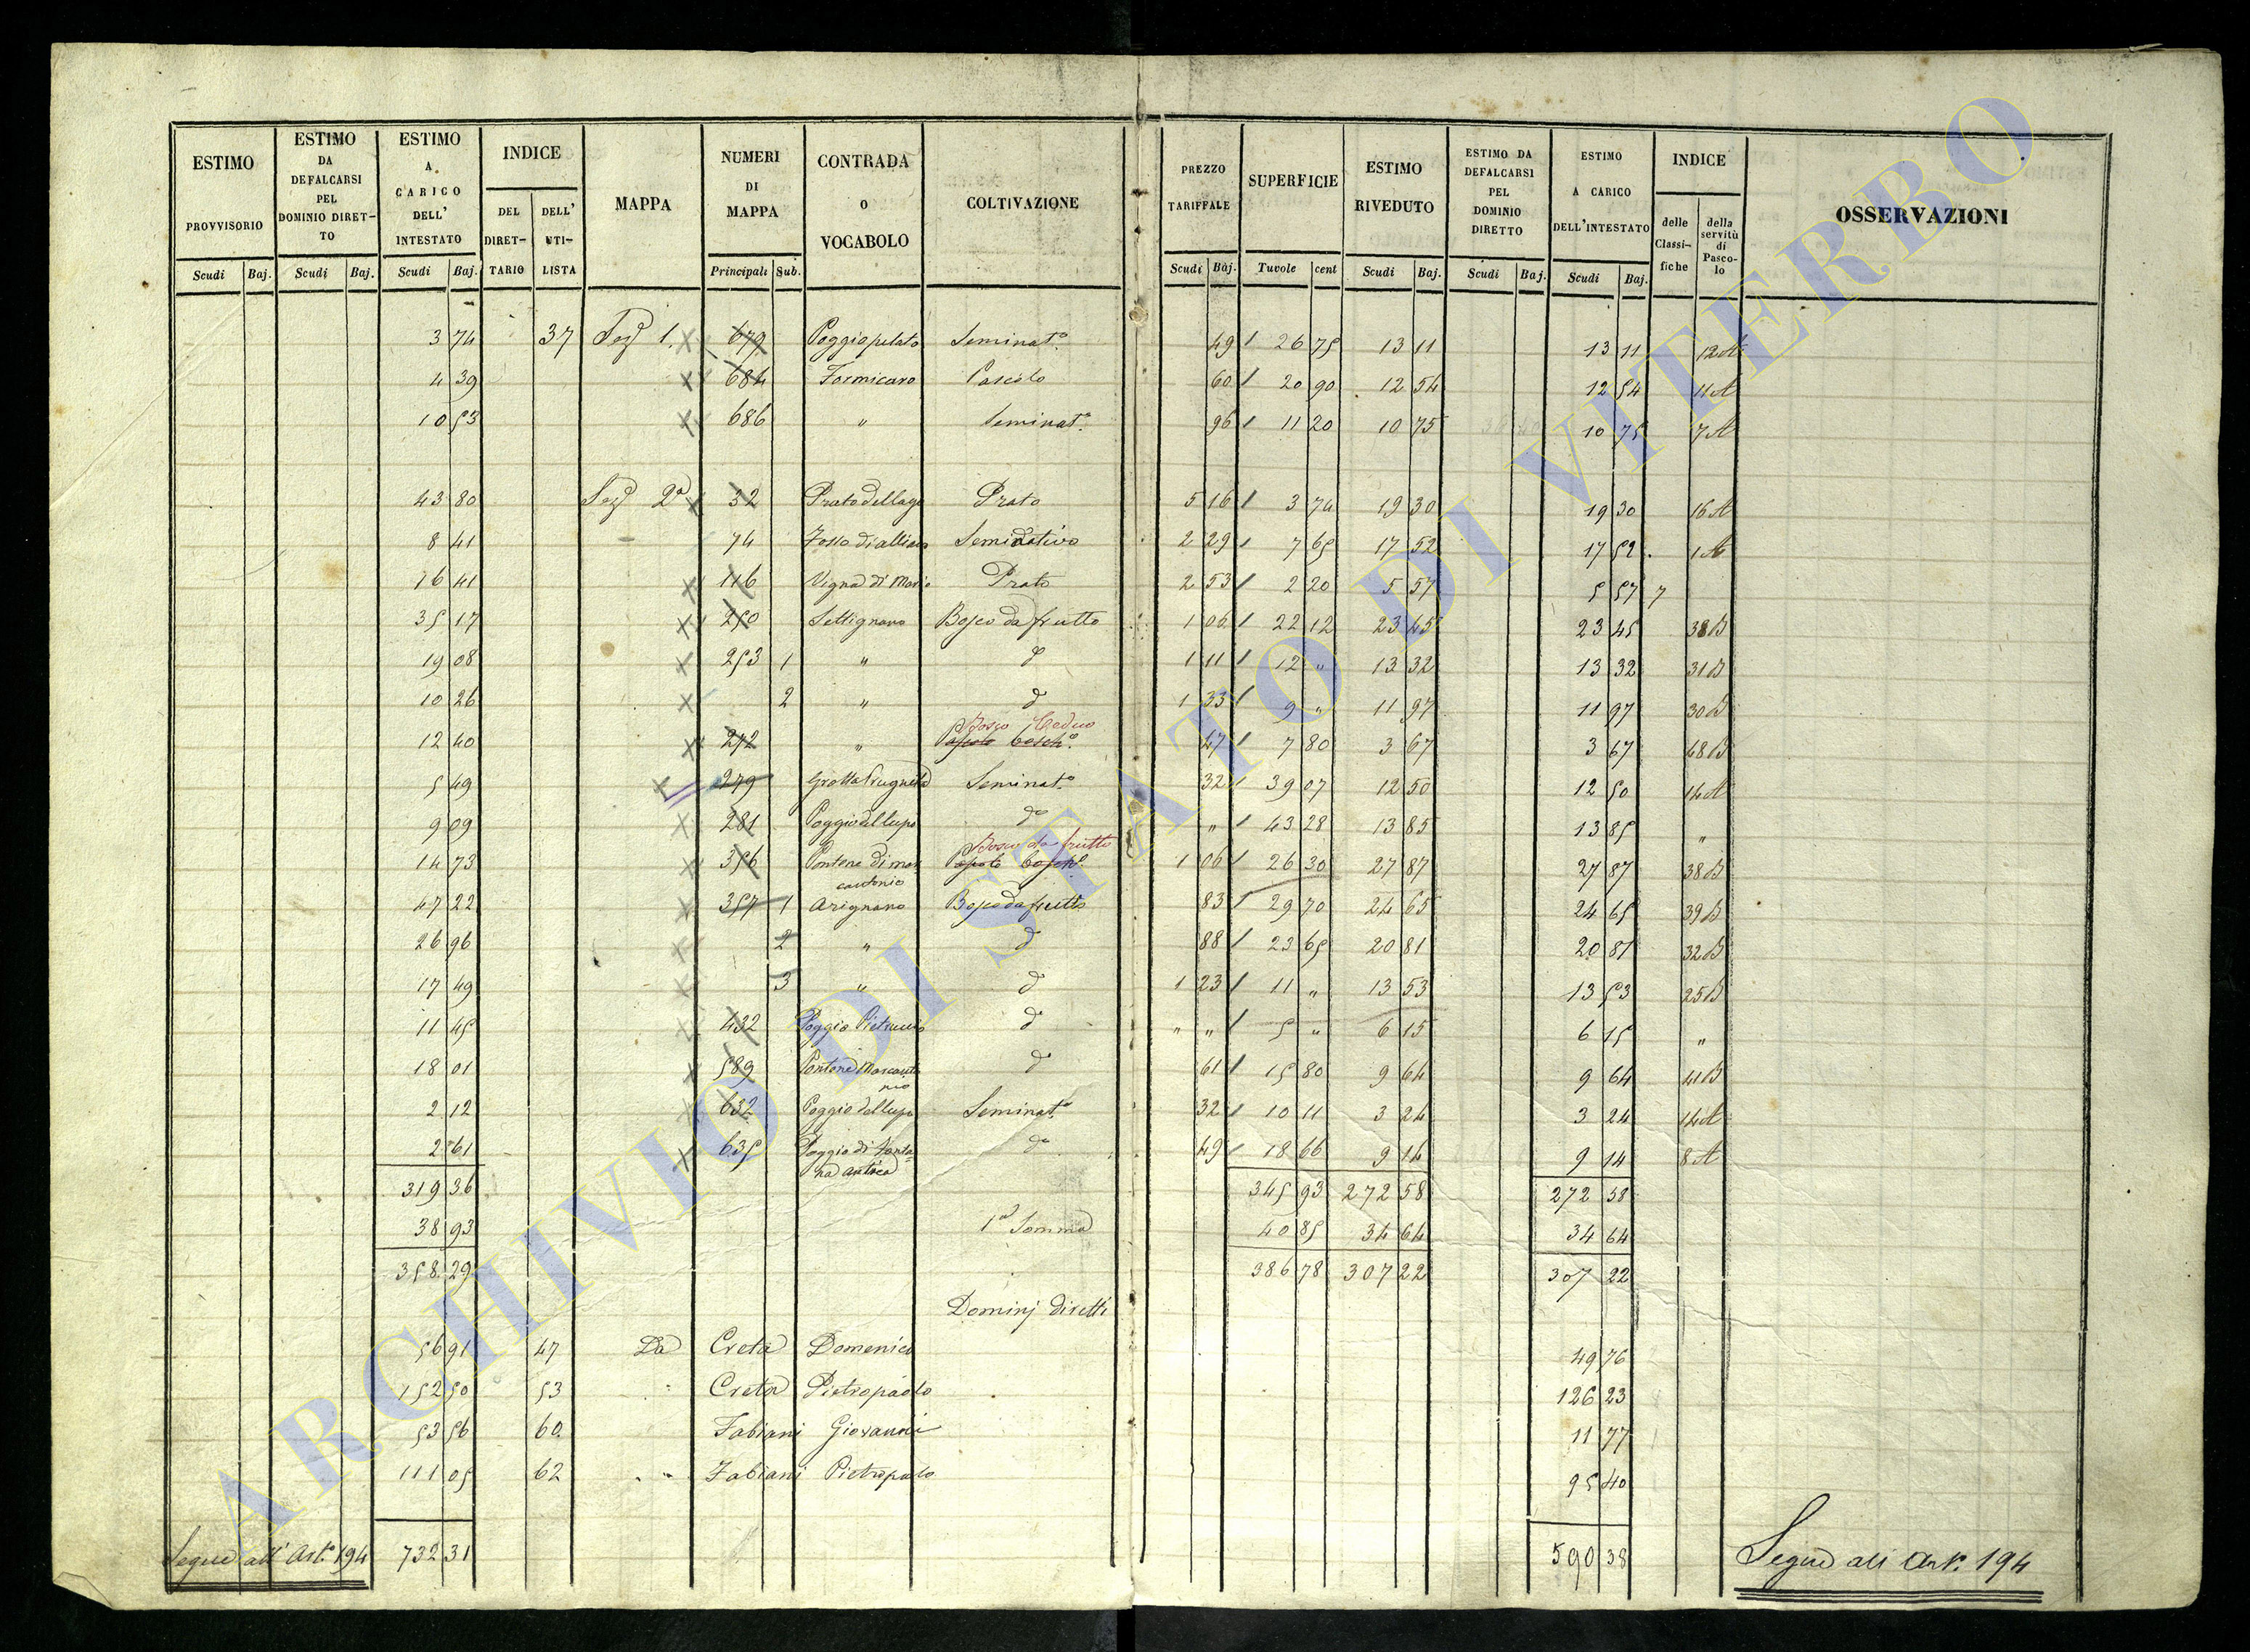 ESTIMO PROVVISORIO | ESTIMO DA DEFALCARSI PEL DOMINIO DIRETTO | ESTIMO A CARICO DELL' INTESTATO | INDICE DEL DIRETTARIO | DELL' UTILISTA | MAPPA | NUMERI DI MAPPA | CONTRADA O VOCABOLO | COLTIVAZIONE | PREZZO TARIFFALE | SUPERFICIE | ESTIMO RIVEDUTO | ESTIMO DA DEFALCARSI PEL DOMINIO DIRETTO | ESTIMO A CARICO DELL'INTESTATO | INDICE delle Classifiche | della servitù di Pascolo | OSSERVAZIONI
Scudi Baj. | Scudi Baj. | Scudi Baj. | Principali Sub. | Scudi Baj. | Tavole cent | Scudi Baj. | Scudi Baj. | Scudi Baj.
3 74 37 Sez 1. 679 Poggiopelato Seminat.o 49 26 75 13 11 13 11 12 A
4 39 684 Formicaro Pascolo 60 20 90 12 54 12 54 11 A
10 53 686 " Seminat.o 96 11 20 10 75 10 75 7 A
43 80 Sez 2a 32 Prato dellago Prato 5 16 3 74 19 30 19 30 16 A
8 41 74 Fosso di Seminativo 2 29 7 65 17 52 17 52 1 A
16 41 116 Vigna di Mario Prato 2 53 2 20 5 57 5 57 7
35 17 250 Settignano Bosco da frutto 1 06 22 12 23 45 23 45 38 B
19 08 253 1 " d 1 11 12 " 13 32 13 32 31 B
10 26 2 " d 1 33 9 " 11 97 11 97 30 B
Bosco Ceduo
12 40 272 " Pascolo bosch.o 47 7 80 3 67 3 67 48 B
5 49 279 Grotta Seminat.o 32 39 07 12 50 12 50 14 A
9 09 281 Poggio del lupo do " 43 28 13 85 13 85 "
Bosco da frutto
14 73 356 Pontone di marcantonio Pascolo bosch.o 1 06 26 30 27 87 27 87 38 B
47 22 357 1 Arignano Bosco da frutto 83 29 70 24 65 24 65 39 B
26 96 2 " d 88 23 65 20 81 20 81 32 B
17 49 3 " d 1 23 11 " 13 53 13 53 25 B
11 45 432 Poggio Pietruccio d " " 5 " 6 15 6 15 "
18 01 589 Pontone Marcantonio d 61 15 80 9 64 9 64 41 B
2 12 632 Poggio del lupo Seminat.o 32 10 11 3 24 3 24 14 A
2 61 635 Poggio di Fontana antica do 49 18 66 9 14 9 14 8 A
319 36 345 93 272 58 272 58
38 93 1a Somma 40 85 34 64 34 64
358 29 386 78 307 22 307 22
Dominj diretti
56 91 47 Da Creta Domenico 49 76
152 50 53 " Creta Pietropaolo 126 23
53 56 60 Fabiani Giovanni 11 77
111 05 62 " Fabiani Pietropaolo 95 40
Segue all' Art.o 194 732 31 590 38 Segue all Art. 194
ARCHIVIO DI STATO DI VITERBO